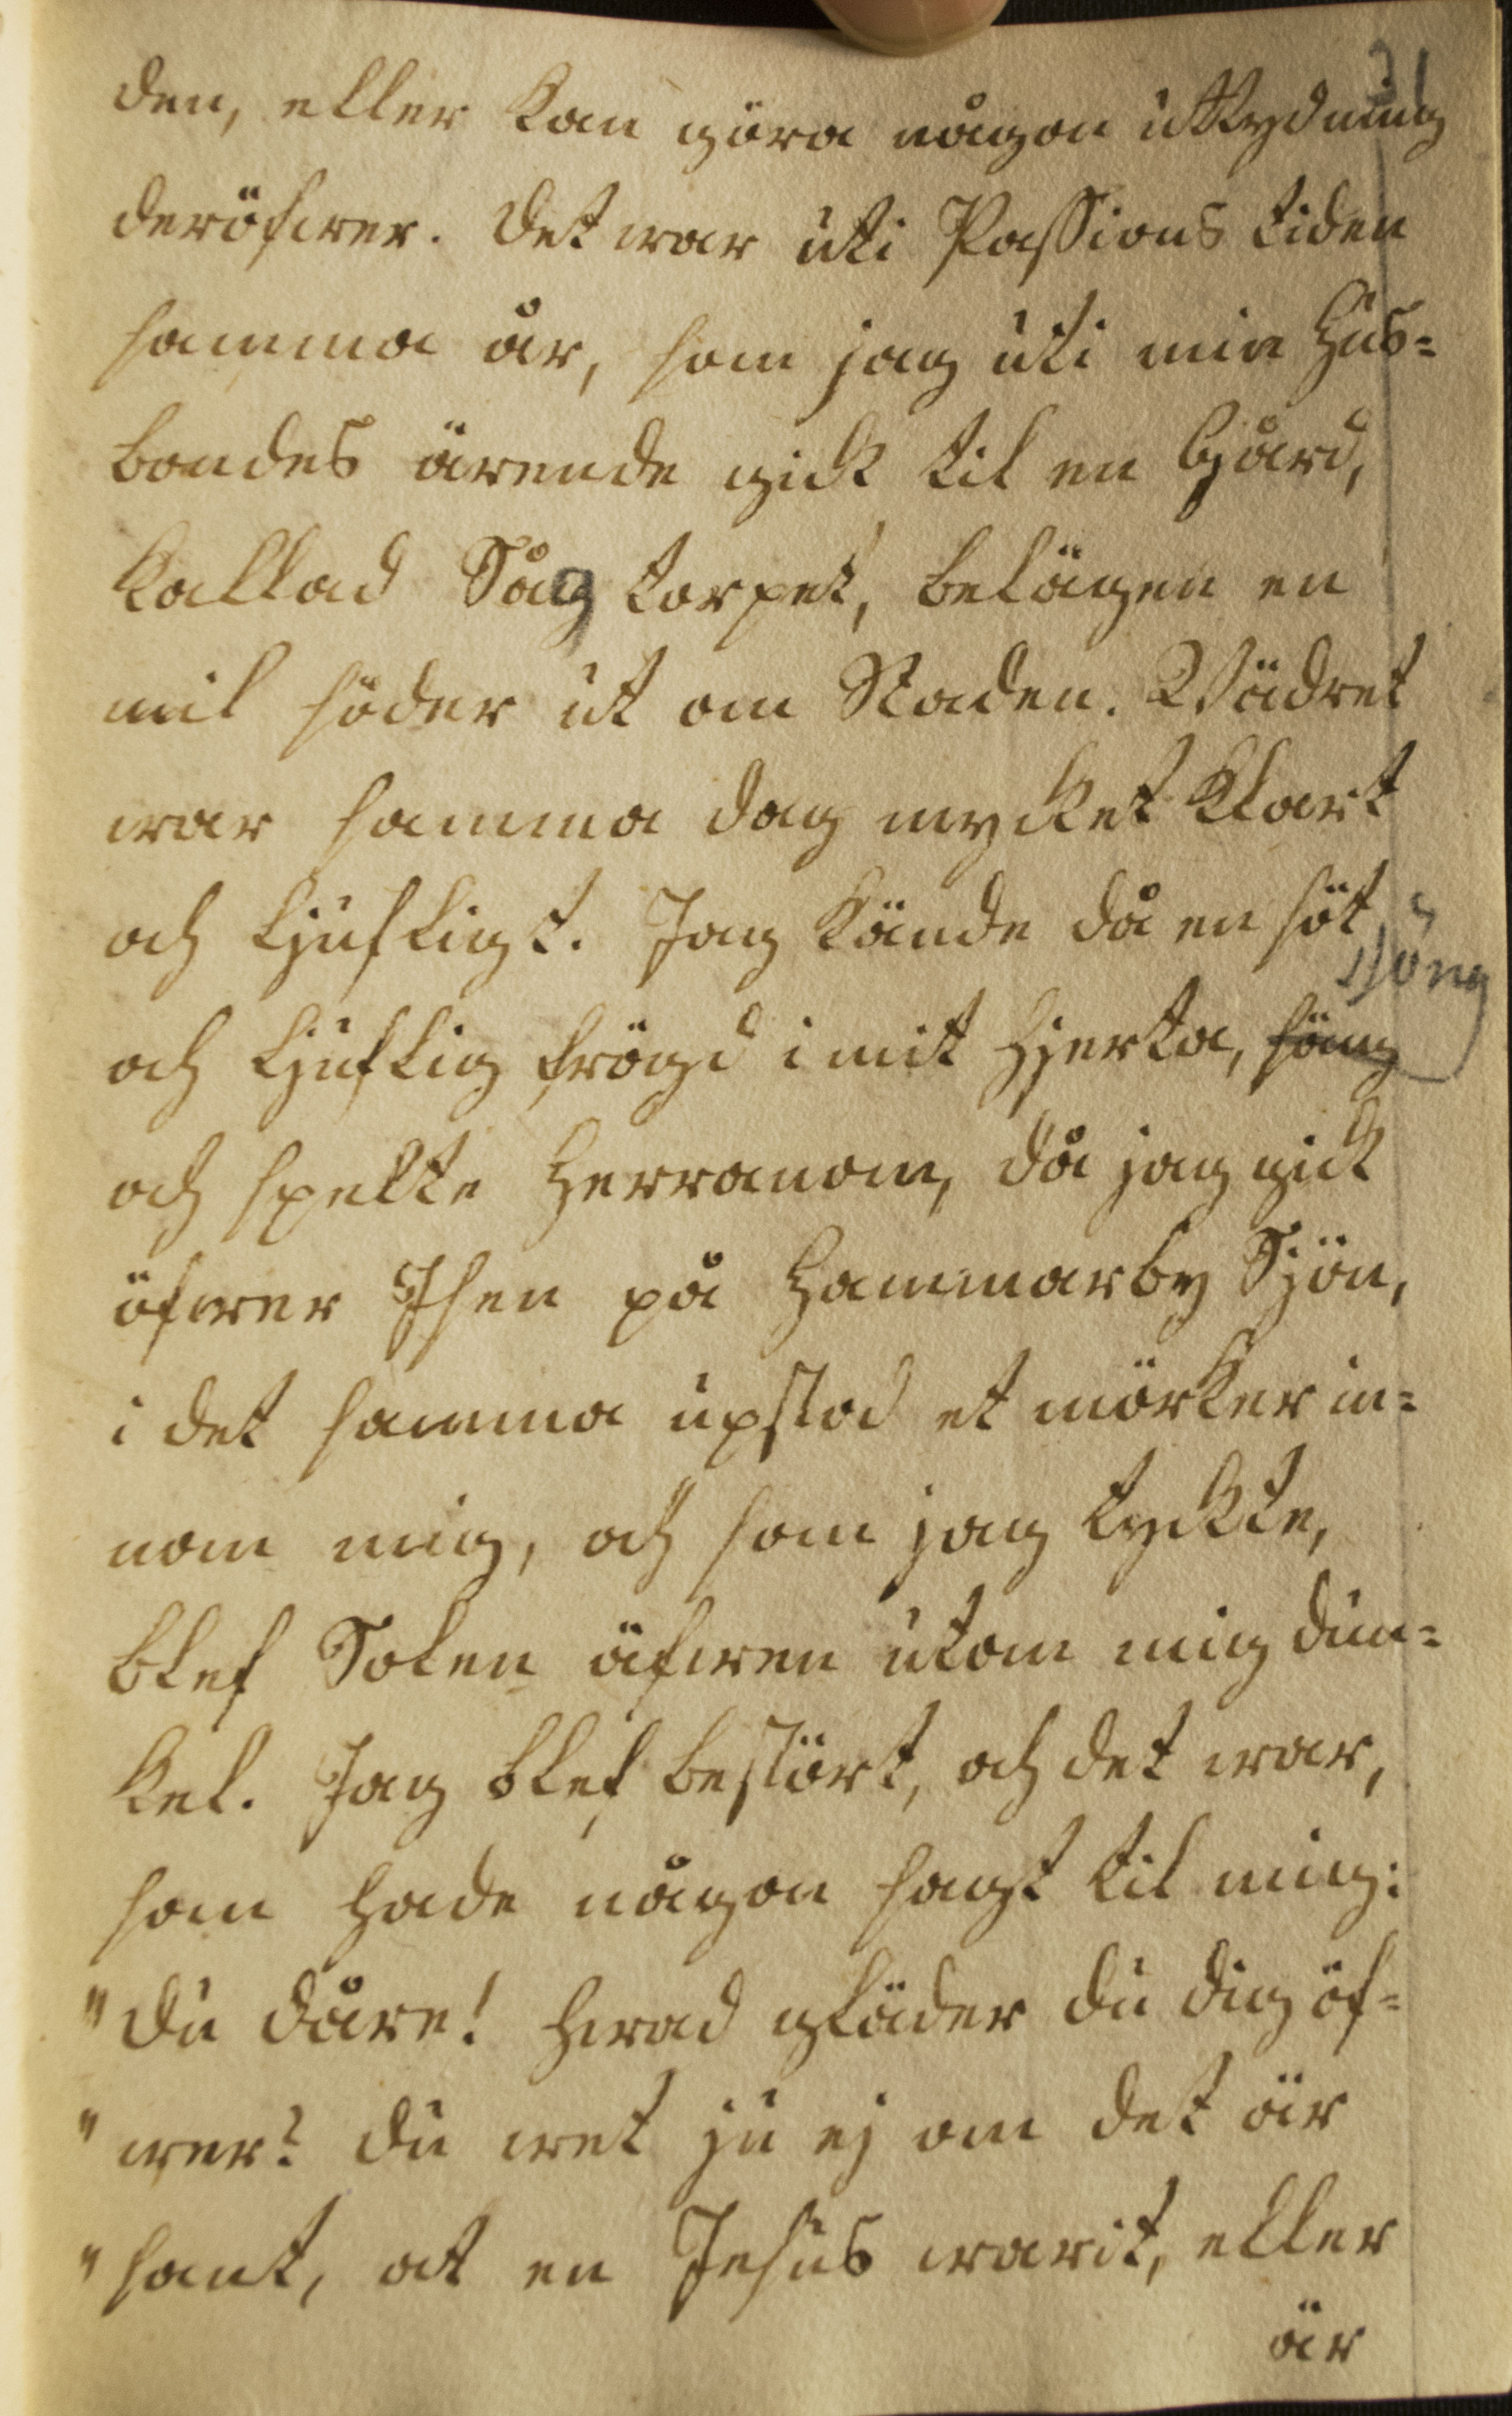 31
den, eller kan göra någon uttydning
deröfwer. Det war uti Passions tiden
samma år, som jag uti min Hus=
bondes ärende gick til en Gård,
kallad Sågtorpet, belägen en
mil söder ut om Staden. Wädret
war samma dag mycket klart
och ljufligt. Jag kände då en söt
sjöng
och ljuflig frögd i mit Hjerta, söng
och spelte Herranom, då jag gick
öfwer Isen på Hammarby Sjön,
i det samma upstod et mörker in=
nom mig, och som jag tyckte,
blef Solen äfwen utom mig dun=
kel. Jag blef bestört, och det war,
som hade någon sagt til mig:
"Du dåre! Hwad gläder du dig öf=
"wer? Du wet ju ej om det är
"sant, at en Jesus warit, eller
är